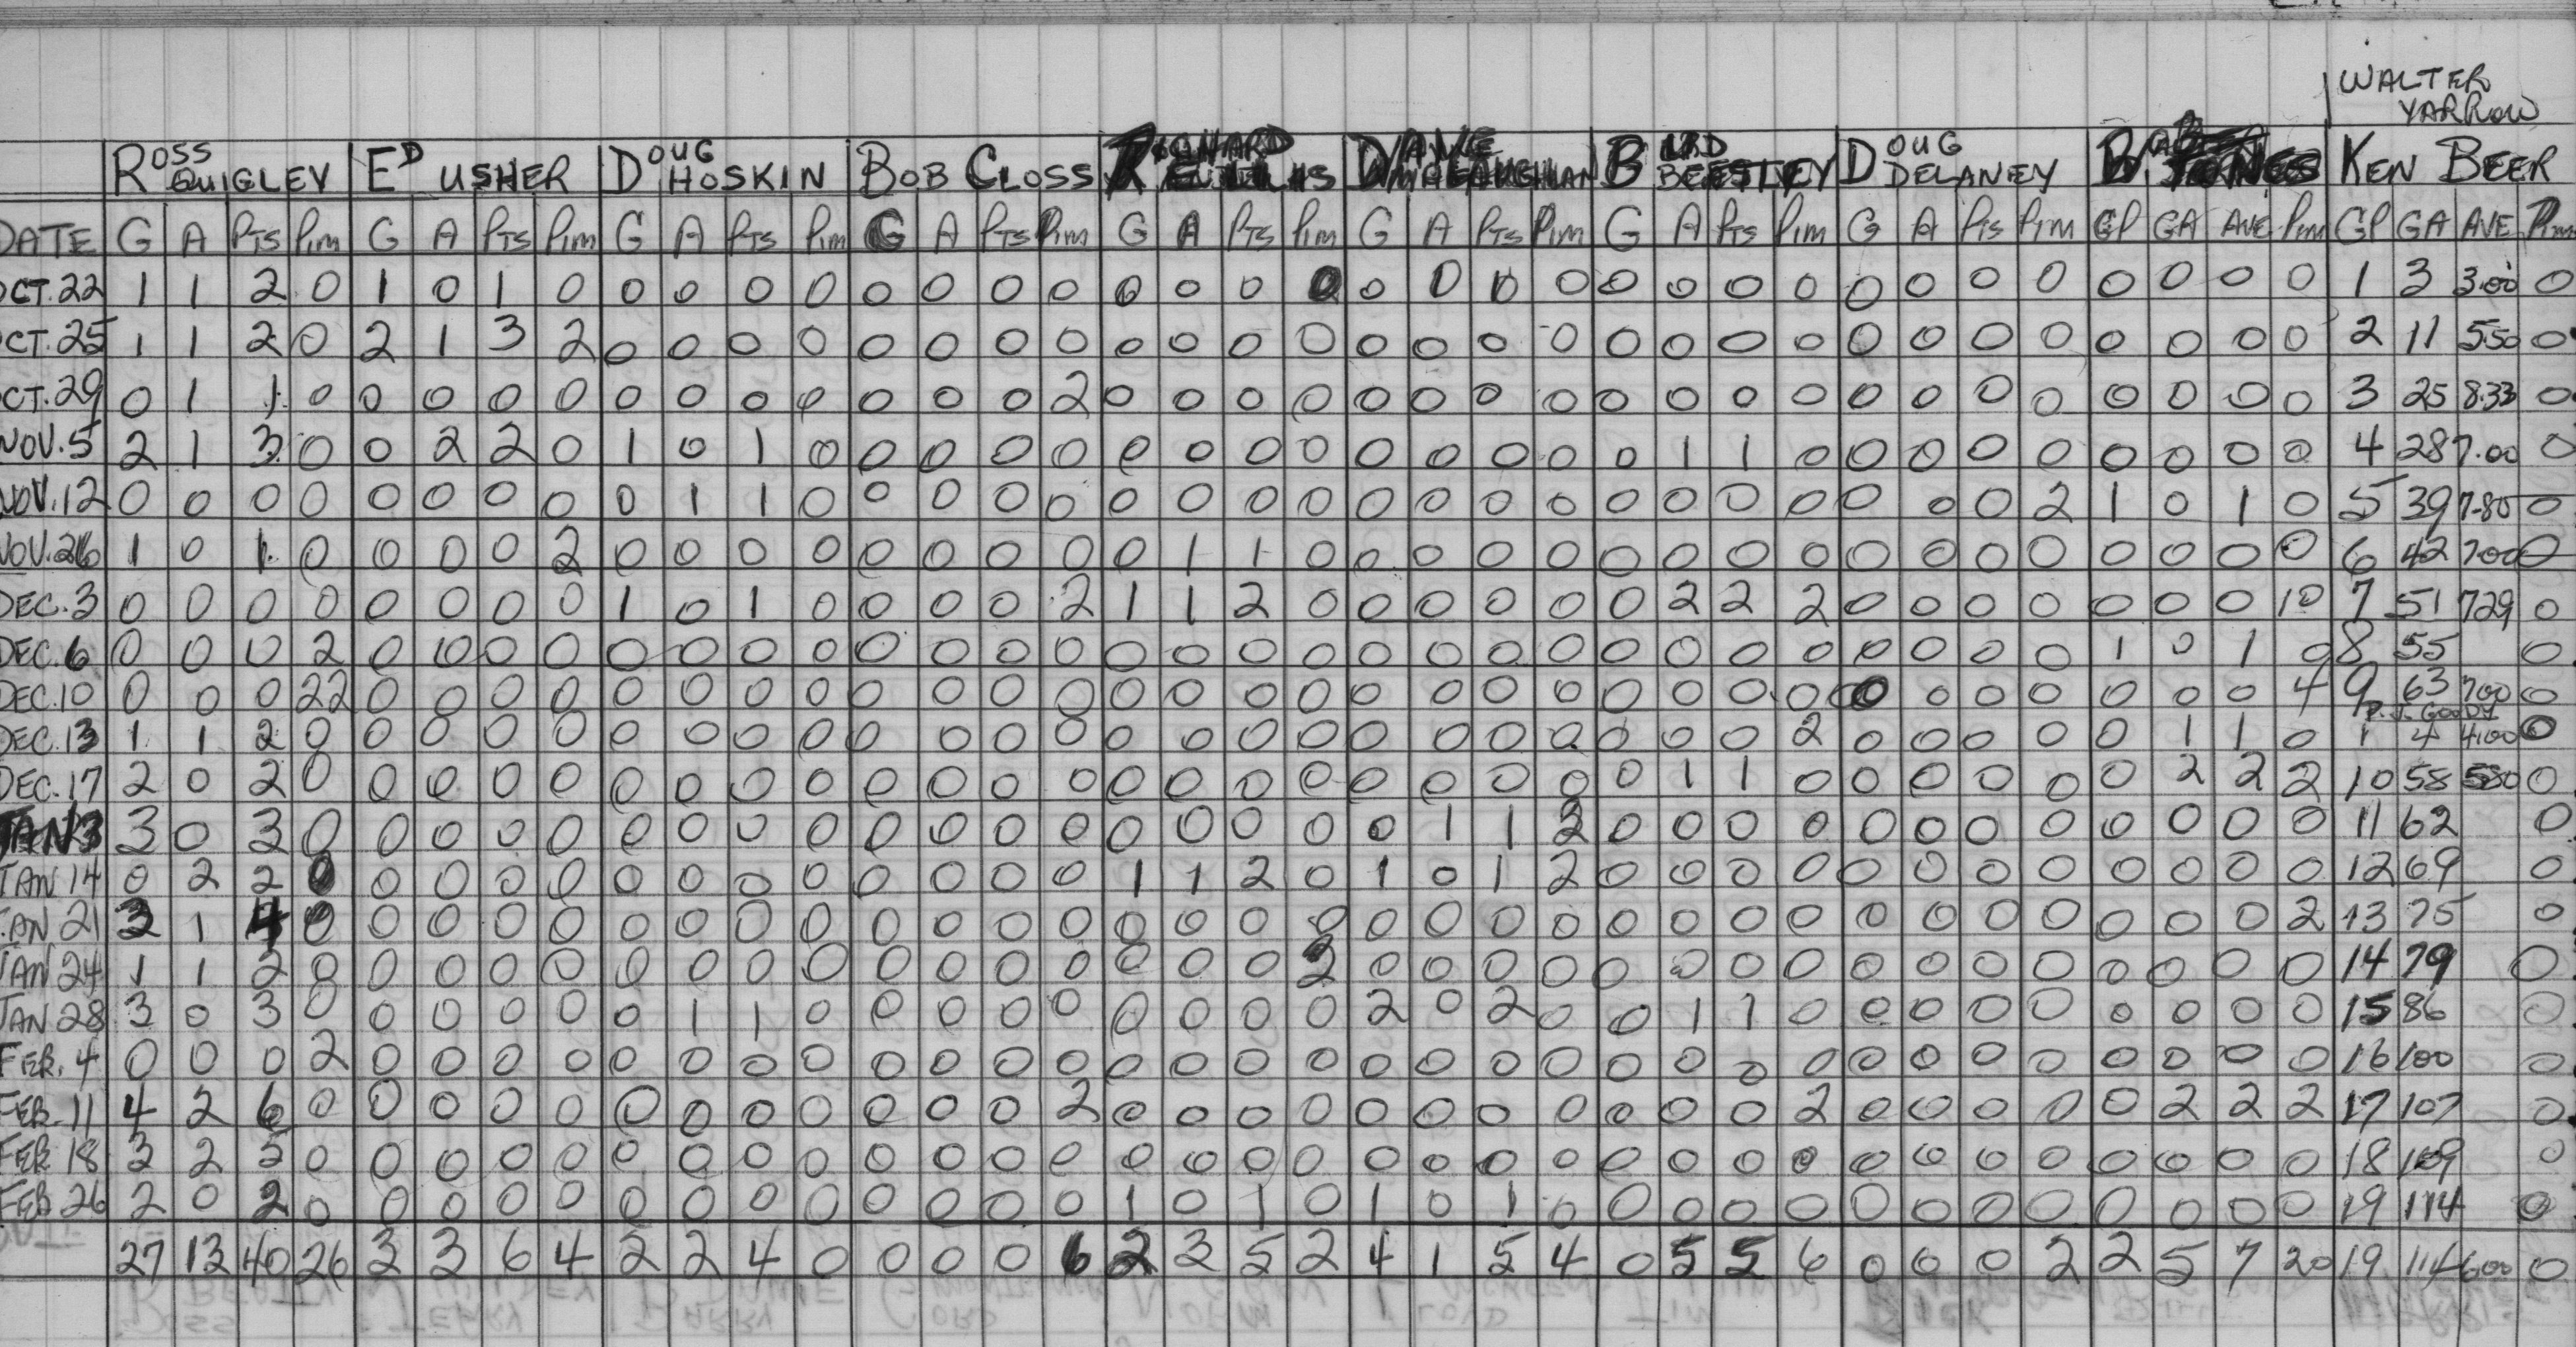 WALTER
YARROW
ROSS QUIGLEY ED USHER DOUG HOSKIN BOB CLOSS RICHARD DAVE BIRD BEESTLEY DOUG DELANEY KEN BEER
DATE G A PTS PIM G A PTS PIM G A PTS PIM G A PTS PIM G A PTS PIM G A PTS PIM G A PTS PIM G A PTS PIM GP GA AVE PIM GP GA AVE PIM
OCT. 22 1 1 2 0 1 0 1 0 0 0 0 0 0 0 0 0 0 0 0 0 0 0 0 0 0 0 0 0 0 0 0 0 0 0 0 0 1 3 3.00 0
OCT. 25 1 1 2 0 2 1 3 2 0 0 0 0 0 0 0 0 0 0 0 0 0 0 0 0 0 0 0 0 0 0 0 0 0 0 0 0 2 11 5.50 0
OCT. 29 0 1 1 0 0 0 0 0 0 0 0 0 0 0 0 2 0 0 0 0 0 0 0 0 0 0 0 0 0 0 0 0 0 0 0 0 3 25 8.33 0
NOV. 5 2 1 3 0 0 2 2 0 1 0 1 0 0 0 0 0 0 0 0 0 0 0 0 0 0 1 1 0 0 0 0 0 0 0 0 0 4 28 7.00 0
NOV. 12 0 0 0 0 0 0 0 0 0 1 1 0 0 0 0 0 0 0 0 0 0 0 0 0 0 0 0 0 0 0 0 2 1 0 1 0 5 39 7.80 0
NOV. 26 1 0 1 0 0 0 0 2 0 0 0 0 0 0 0 0 0 1 1 0 0 0 0 0 0 0 0 0 0 0 0 0 0 0 0 0 6 42 7.00 0
DEC. 3 0 0 0 0 0 0 0 0 1 0 1 0 0 0 0 2 1 1 2 0 0 0 0 0 0 2 2 2 0 0 0 0 0 0 0 10 7 51 7.29 0
DEC. 6 0 0 0 2 0 0 0 0 0 0 0 0 0 0 0 0 0 0 0 0 0 0 0 0 0 0 0 0 0 0 0 0 1 0 1 0 8 55 0
DEC. 10 0 0 0 22 0 0 0 0 0 0 0 0 0 0 0 0 0 0 0 0 0 0 0 0 0 0 0 0 0 0 0 0 0 0 0 4 9 63 7.00 0
P. J. GOODY
DEC. 13 1 1 2 0 0 0 0 0 0 0 0 0 0 0 0 0 0 0 0 0 0 0 0 0 0 0 0 2 0 0 0 0 0 1 1 0 1 4 4.00 0
DEC. 17 2 0 2 0 0 0 0 0 0 0 0 0 0 0 0 0 0 0 0 0 0 0 0 0 0 1 1 0 0 0 0 0 0 2 2 2 10 58 580 0
JAN 3 3 0 3 0 0 0 0 0 0 0 0 0 0 0 0 0 0 0 0 0 0 1 1 2 0 0 0 0 0 0 0 0 0 0 0 0 11 62 0
JAN 14 0 2 2 0 0 0 0 0 0 0 0 0 0 0 0 0 1 1 2 0 1 0 1 2 0 0 0 0 0 0 0 0 0 0 0 0 12 69 0
JAN 21 3 1 4 0 0 0 0 0 0 0 0 0 0 0 0 0 0 0 0 0 0 0 0 0 0 0 0 0 0 0 0 0 0 0 0 2 13 75 0
JAN 24 1 1 2 0 0 0 0 0 0 0 0 0 0 0 0 0 0 0 0 2 0 0 0 0 0 0 0 0 0 0 0 0 0 0 0 0 14 79 0
JAN 28 3 0 3 0 0 0 0 0 0 1 1 0 0 0 0 0 0 0 0 0 2 0 2 0 0 1 1 0 0 0 0 0 0 0 0 0 15 86 0
FEB. 4 0 0 0 2 0 0 0 0 0 0 0 0 0 0 0 0 0 0 0 0 0 0 0 0 0 0 0 0 0 0 0 0 0 0 0 0 16 100 0
FEB. 11 4 2 6 0 0 0 0 0 0 0 0 0 0 0 0 2 0 0 0 0 0 0 0 0 0 0 0 2 0 0 0 0 0 2 2 2 17 107 0
FEB 18 3 2 5 0 0 0 0 0 0 0 0 0 0 0 0 0 0 0 0 0 0 0 0 0 0 0 0 0 0 0 0 0 0 0 0 0 18 109 0
FEB 26 2 0 2 0 0 0 0 0 0 0 0 0 0 0 0 0 1 0 1 0 1 0 1 0 0 0 0 0 0 0 0 0 0 0 0 0 19 114 0
27 13 40 26 3 3 6 4 2 2 4 0 0 0 0 6 2 3 5 2 4 1 5 4 0 5 5 6 0 0 0 2 2 5 7 20 19 114 600 0